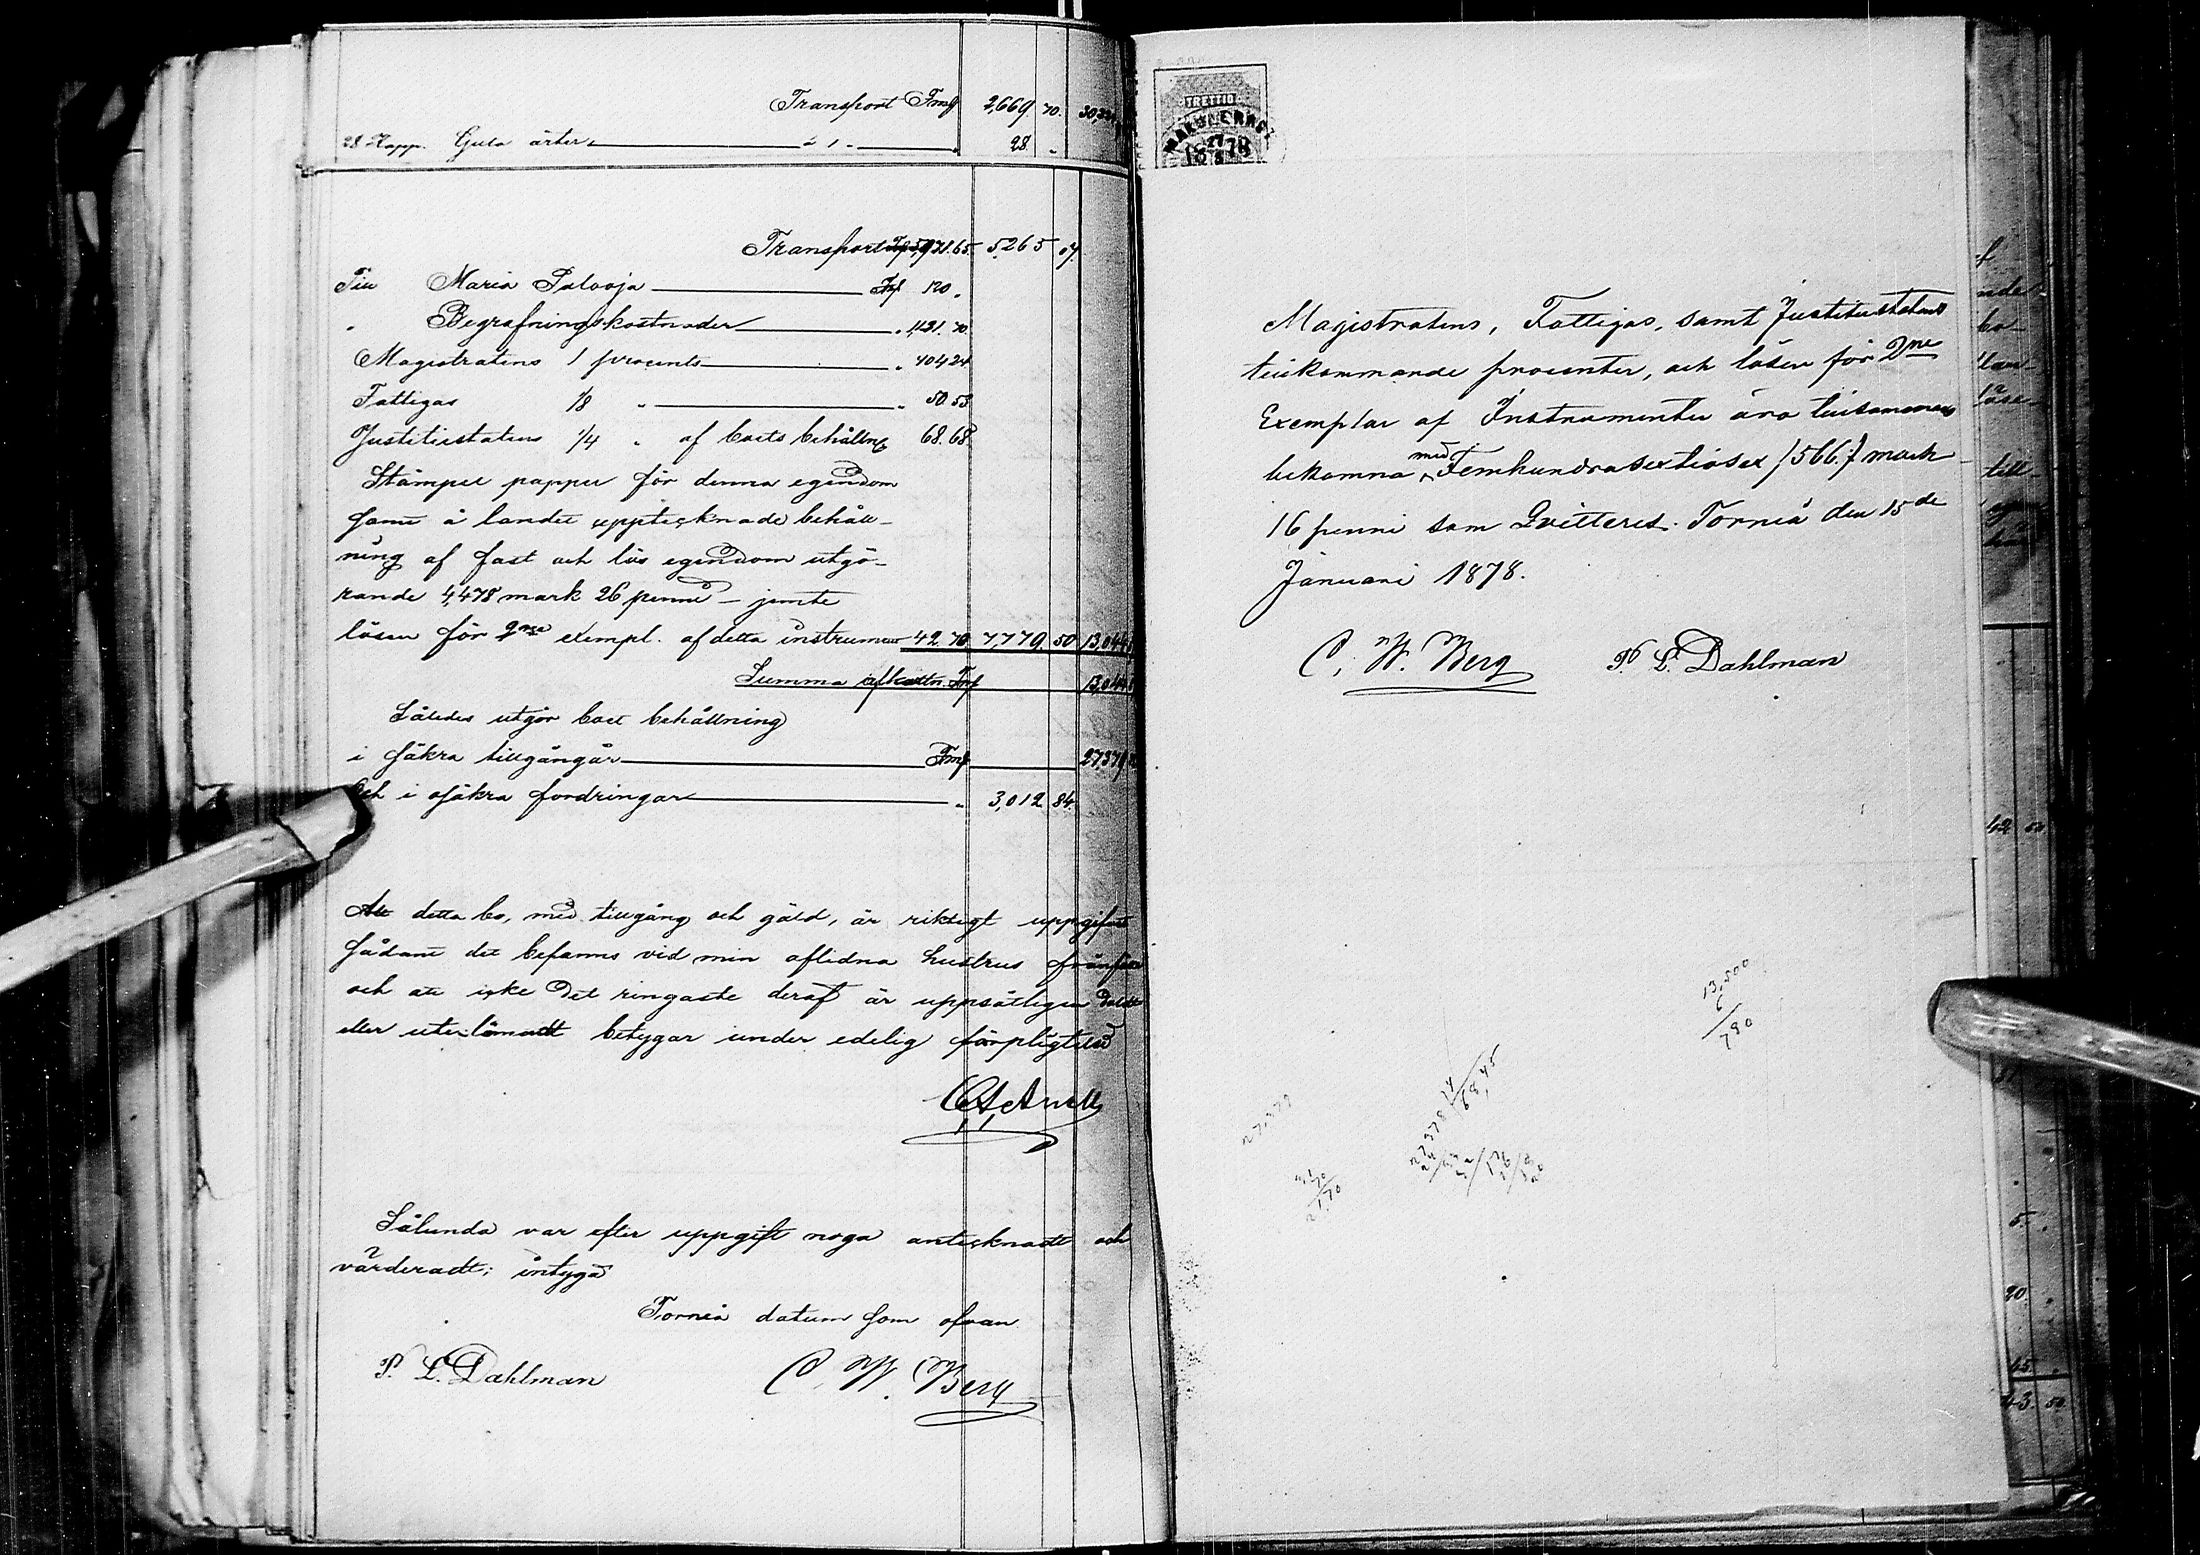 Transport Fmk 2,669 70. 30,
28 Kapp. Gula ärter á 1 28 "
Transport Fmk 5,971.65. 5,265 07.
Till Maria Palovja Fmk 120 "
" Begrafningskostnader " 1,121. 70
Magistratens 1 procents " 404 24
Fattigas 1/8 " " 50. 53
Justitiestatens 1/4 " af boets behålln. 68. 68.
Stämpel papper för denna egendom
samt å landet upptecknade behåll-
ning af fast och lös egendom utgö-
rande 4,478 mark 26 penni - jemte
lösen för 2ne exempl. af detta instrument 42. 70 7,779 50 13,044
Summa afkortn. Fmk 13,044
Således utgör boet behållning
i säkra tillgångar Fmk 27,379
Och i osäkra fordringar " 3,012 84.
Att detta bo, med tillgång och gäld, är riktigt uppgifvet
sådant det befanns vid min aflidna hustrus frånfälle
och att icke det ringaste deraf är uppsåtligen doldt
eller utelämnadt betygar under edelig förpligtelse
Sålunda var efter uppgift noga antecknadt och
värderadt; intyga
Torneå datum som ofvan
P. L. Dahlman C. W. Berg
TRETTIO
27
1878
Magistratens, Fattigas, samt Justitiestatens
tillkommande procenter, och lösen för 2ne
Exemplar af Instrumentet äro tillsammans
bekomna med Femhundrasextiosex /566./ mark
16 penni som Qvitteres. Torneå den 15de
Januari 1878.
C. W. Berg P. L. Dahlman
13,500
6
790
27,379
42 50
5.
20.
45.
43. 50.